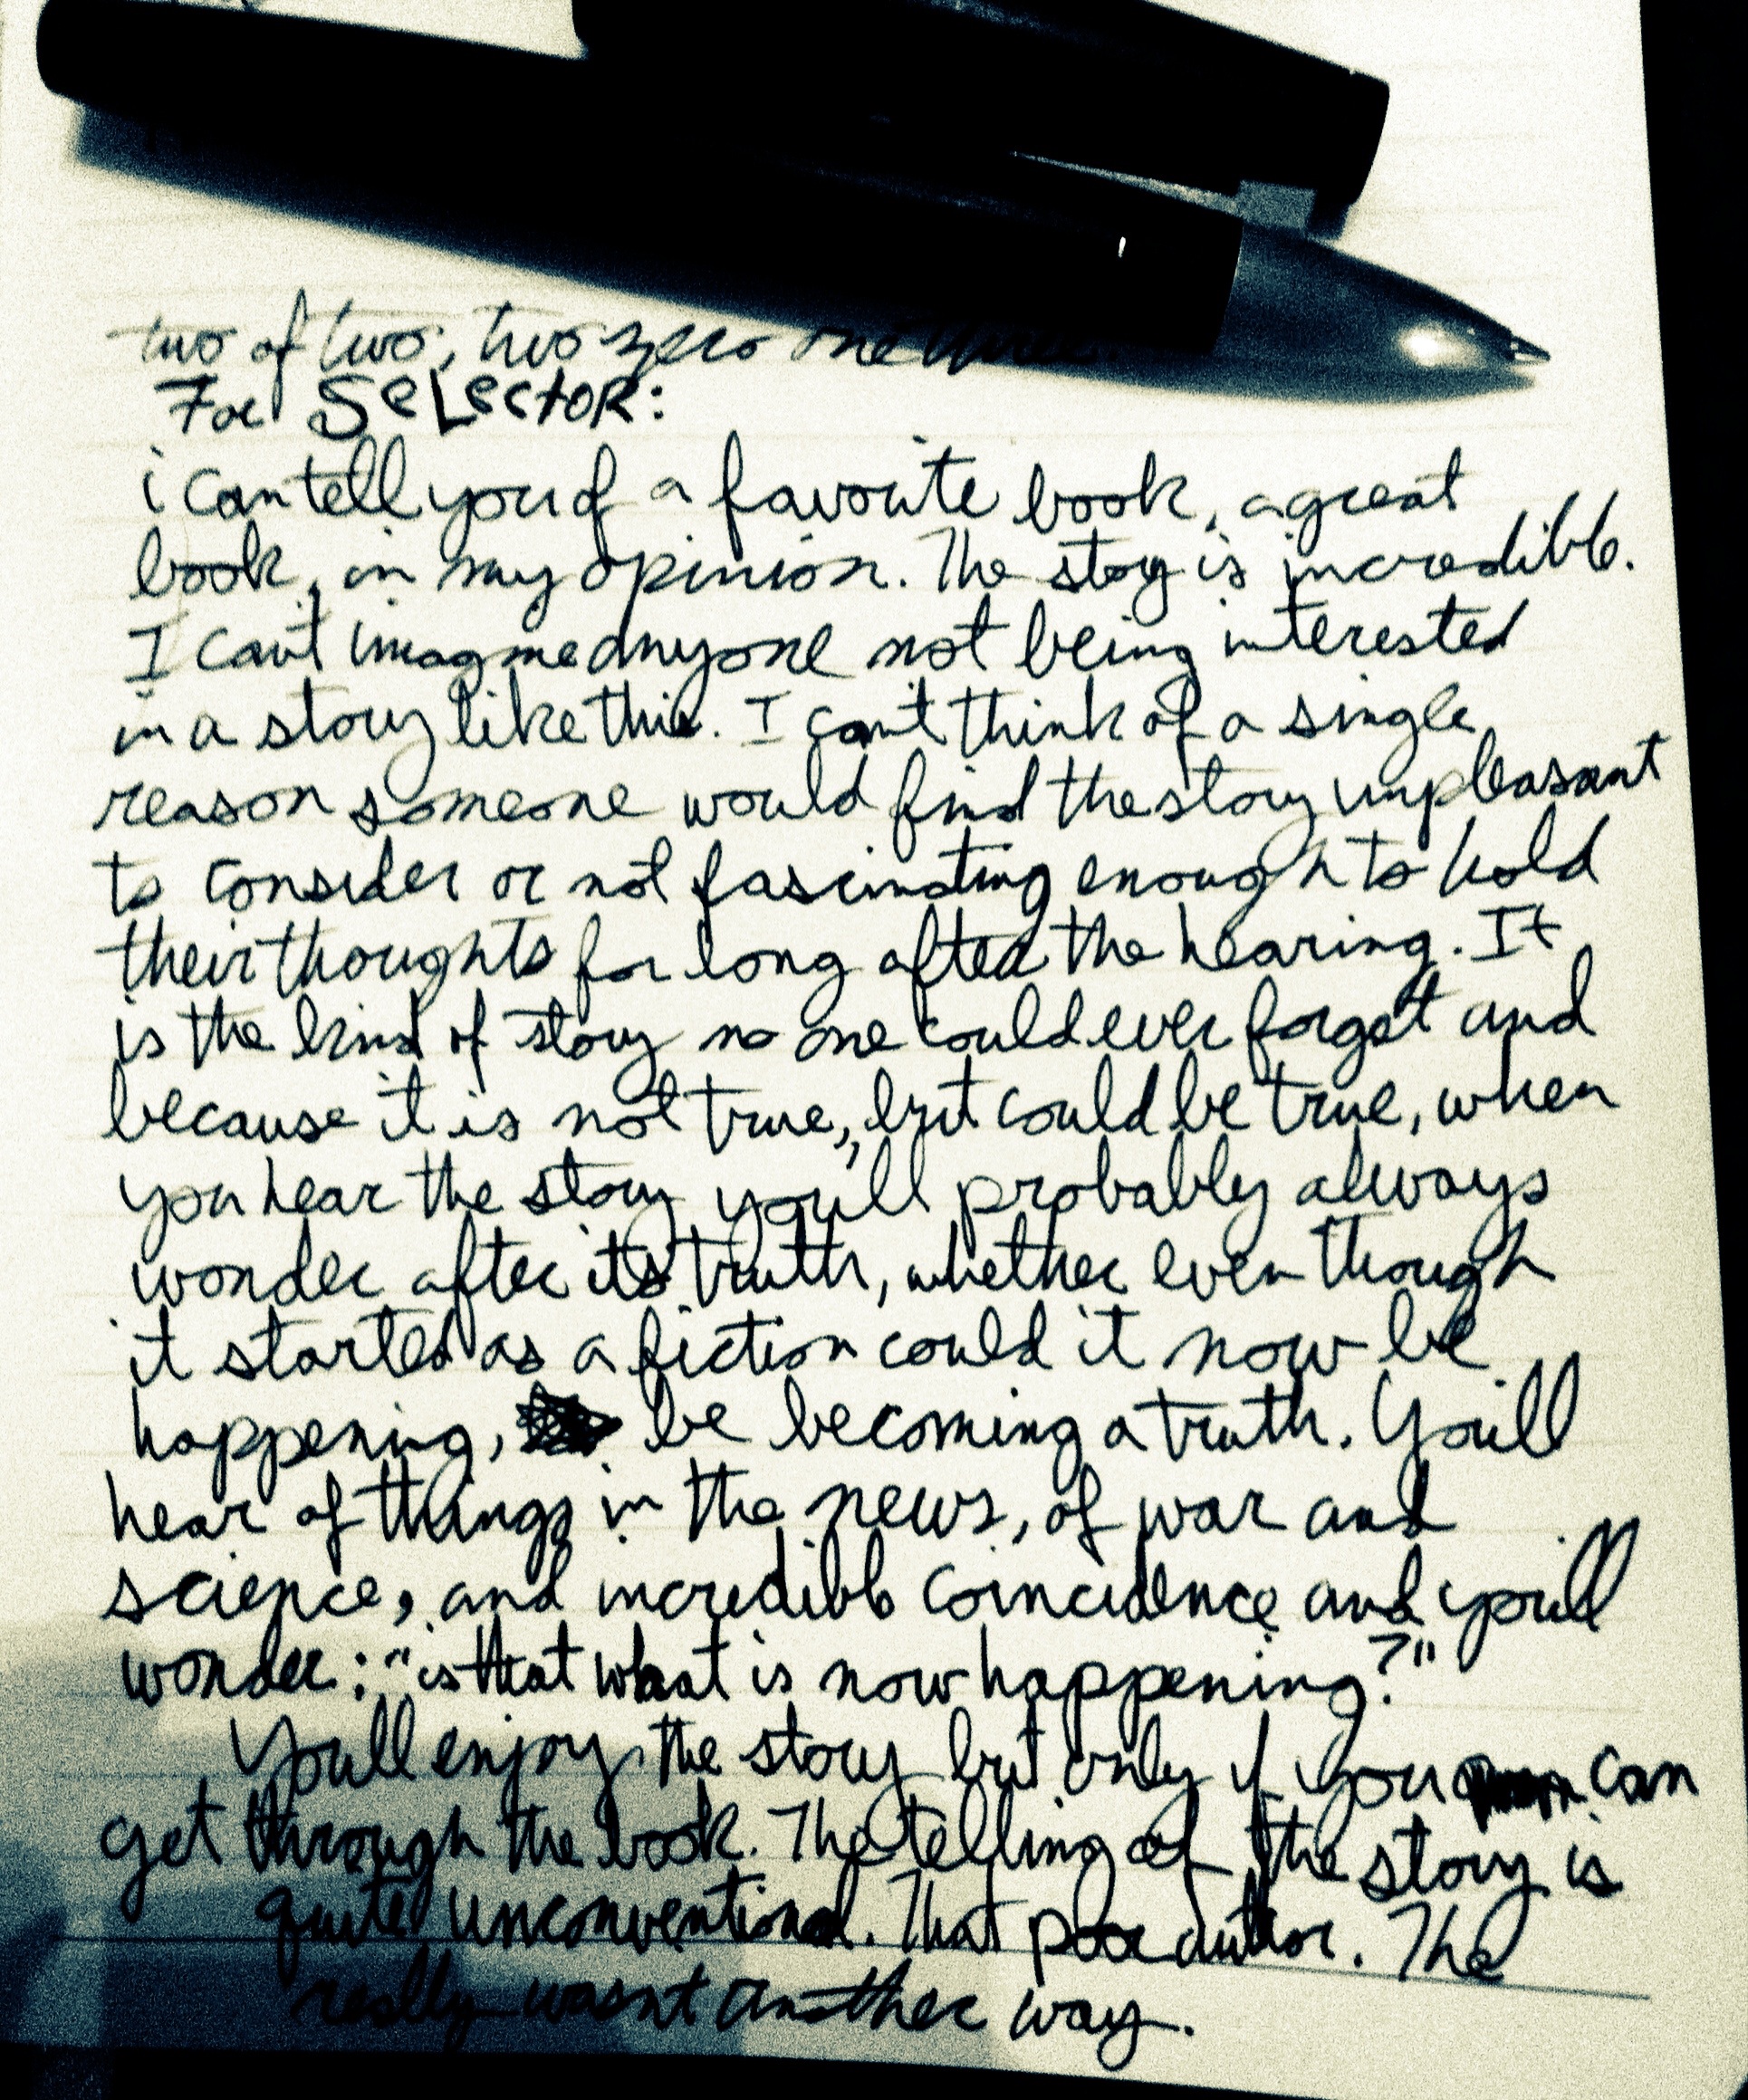 two of two; two zero one three.
For SeLectoR:
i can tell you of a favorite book, a great
book, in my opinion. The story is incredible.
I can't imagine anyone not being interested
in a story like this. I can't think of a single
reason someone would find the story unpleasant
to consider or not fascinating enough to hold
their thoughts for long after the hearing. It
is the kind of story no one could ever forget and
because it is not true, but could be true, when
you hear the story you'll probably always
wonder after its truth, whether even though
it started as a fiction could it now be
happening, be becoming a truth. You'll
hear of things in the news, of war and
science, and incredible coincidence and you'll
wonder: "is that what is now happening?"
You'll enjoy the story but only if you can
get through the book. The telling of the story is
quite unconventional. That poor author. The
really wasn't another way.